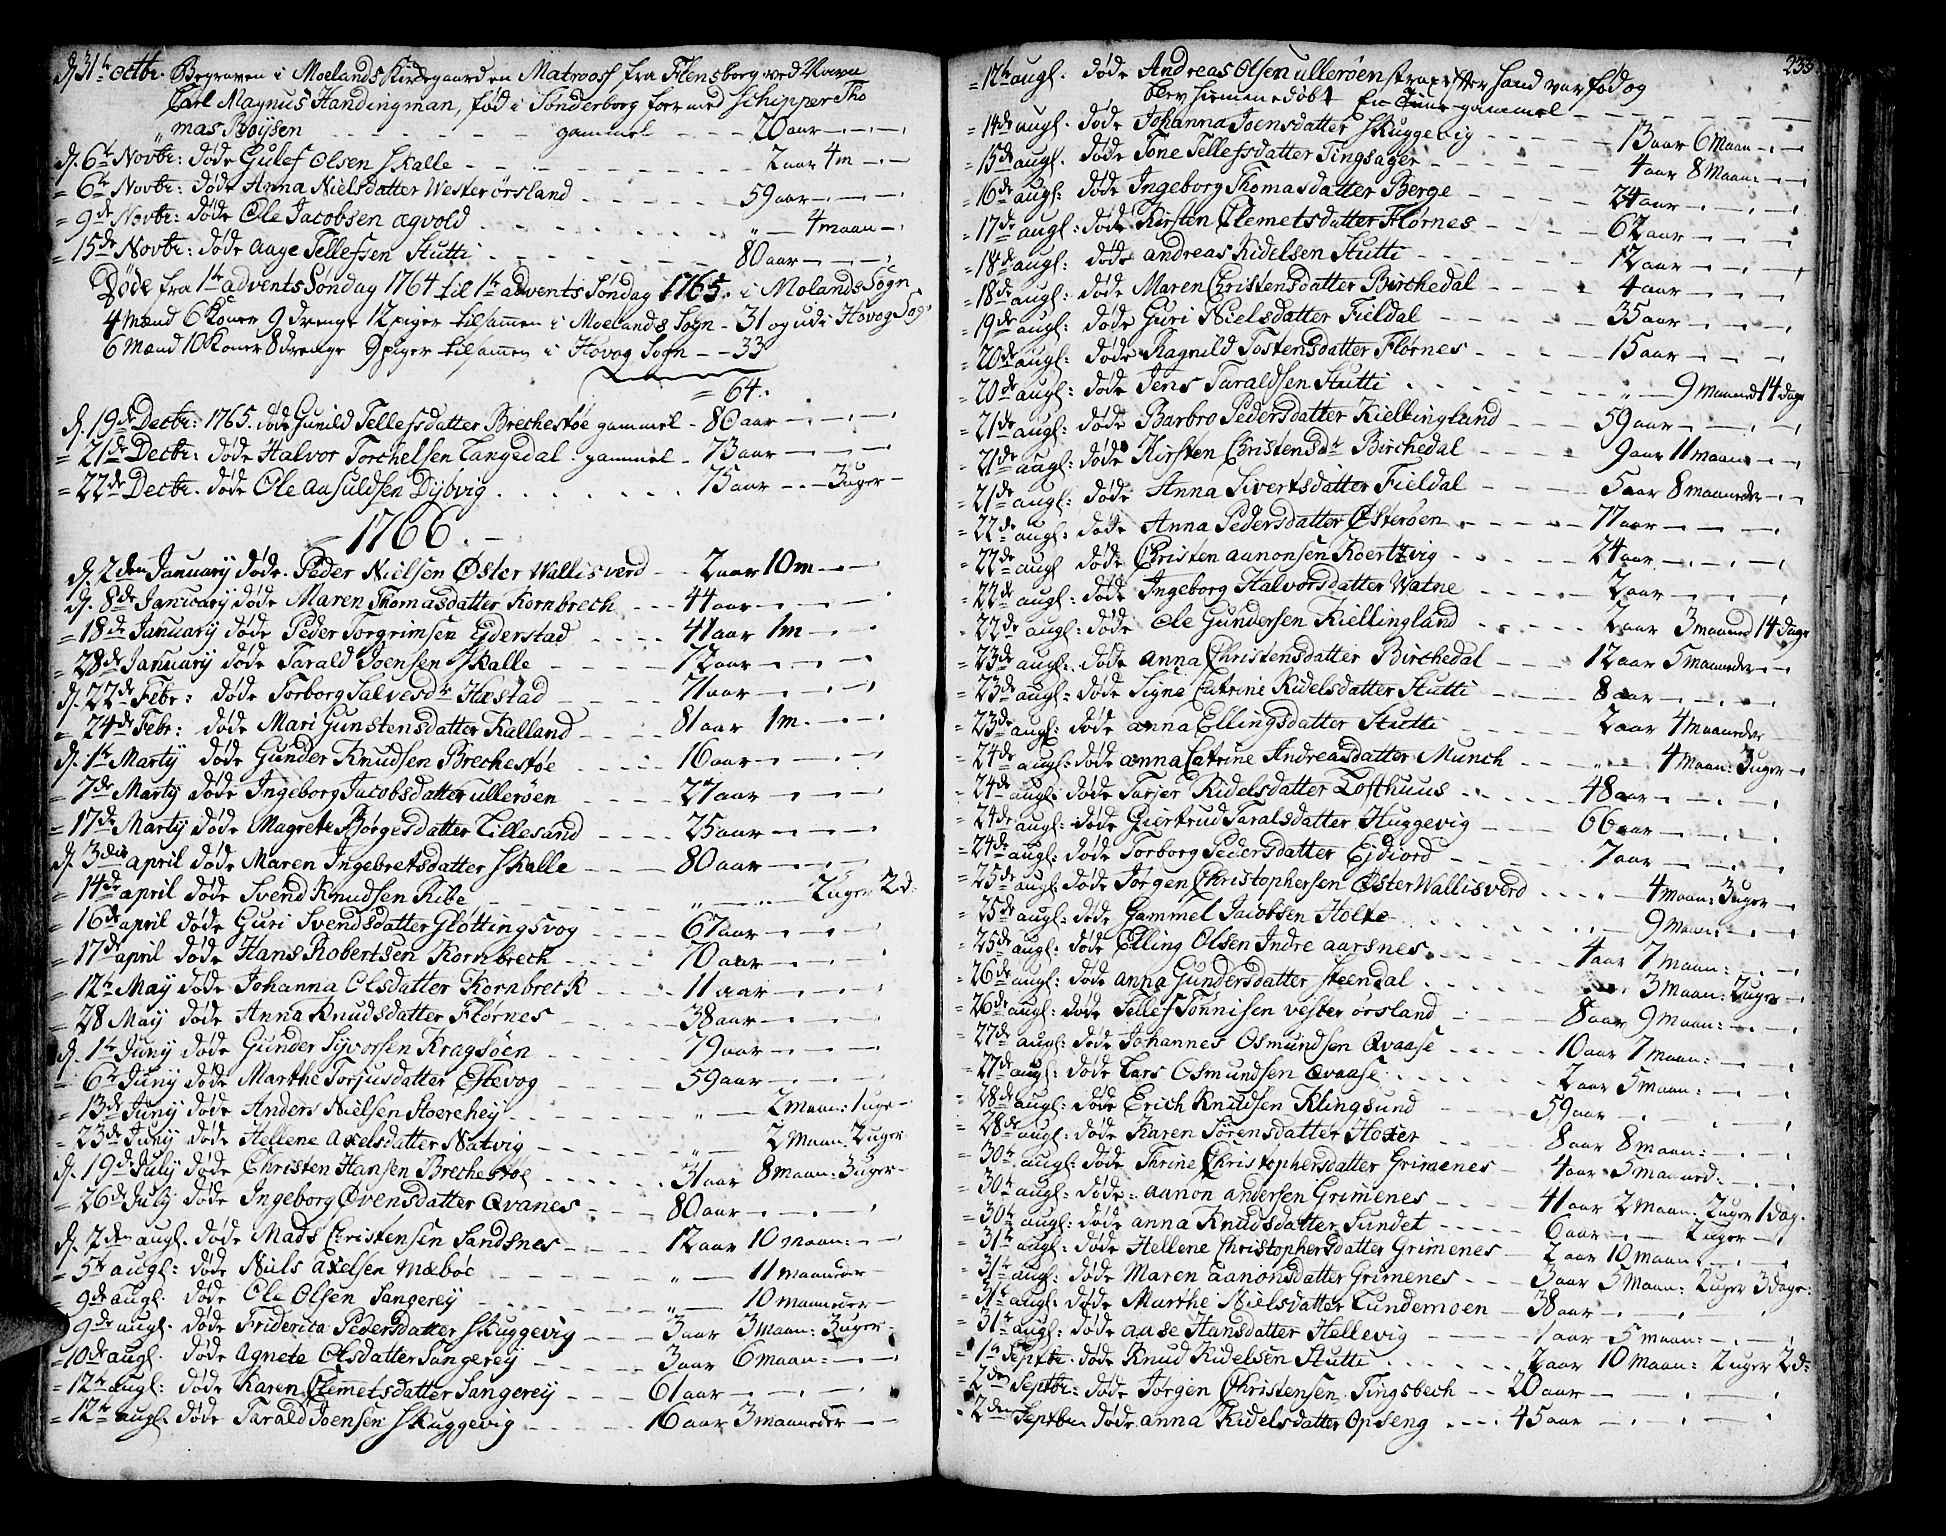 d. 31te Octbr. Begraven i Moelands Kirdegaard en Matroess fra Flensborg ved Navn
Carl Magnus Handingman, fød i Sønderborg foer med Schipper Tho
mas Boijsen gammel 20 aar
d. 6te Novbr: døde Gulef Olsen Skalle 2 aar 4 m
= 6te Novbr: døde Anna Nielsdatter Wester ørsland 59 aar
= 9de Novbr: døde Ole Jacobsen Ægvold " 4 maan
= 15de Novbr: døde Aage Tellefsen Stutti 80 aar
Døde fra 1te advents Søndag 1764 til 1te advents Søndag 1765. i Molands Sogn
4 Mænd 6 Koner 9 drenge 12 piger tilsamen i Moelands Sogn - 31 og udi Høvog Sog
6 Mænd 10 Koner 8 drenge 9 piger tilsamen i Høvog Sogn - - 33
= 64.
d. 19de Decbr: 1765. døde Gunild Tellefsdatter Brechestøe gammel - 80 aar
= 21de Decbr: døde Halvor Torchelsen Langedal gammel - 73 aar
= 22de Decbr. døde Ole Aasuldsen Dijbvig 75 aar - 3 uger
1766.
d. 2den January døde. Peder Nielsen Øster Wallisverd 2 aar 10 m
d. 8de January døde Maren Thomasdatter Kornbrech 44 aar
= 18de January døde Peder Torgrimsen Ejderstad 41 aar 1 m
= 28de January døde Tarald Joensen Skalle 72 aar
d. 22de Febr: døde Torborg Salvesdtr Hæstad 71 aar
= 24de Febr: døde Mari Gunstensdatter Kalland 81 aar 1 m
d. 1te Marty døde Gunder Knudsen Brechestøe 16 aar
= 7de Marty døde Ingeborg Jacobsdatter ullerøen 27 aar
= 17de Marty døde Magrete Børgesdatter Lillesand 25 aar
d. 3die april døde Maren Ingebretsdatter Skalle 80 aar
= 14de april døde Svend Knudsen Ribe " 2 uger 2 d:
= 16de april døde Guri Svendsdatter Gløttingsvog 67 aar
= 17de april døde Hans Robertsen Kornbrech 70 aar
= 12te May døde Johanna Olsdatter Kornbreck 11 aar
= 28 May døde Anna Knudsdatter Flørnes 38 aar
d. 1te Juny døde Gunder Syvorsen Kragsøen 79 aar
= 6te Juny døde Marthe Torjusdatter Estevog 59 aar
= 13de Juny døde Anders Nielsen Stoerehej " 2 maan: 1 uge
= 23de Juny døde Hellene Axelsdatter Natvig " 2 Maan: 2 uger
d. 19de July døde Christen Hansen Brechestøe 31 aar 8 maan: 3 uger
= 26de July døde Ingeborg Øvensdatter Qvanes 80 aar
d. 2den augl. døde Mads Christensen Sandsnes 12 aar 10 maan:
= 5te augl: døde Niels Axelsen Mæbøe " 11 maaneder
= 9de augl: døde Ole Olsen Sangereij " 10 maaneder
= 9de augl. døde Friderica Pedersdatter Skuggevig 3 aar 3 maan: 3 uger
= 10de augl. døde Agnete Olsdatter Sangereij 3 aar 6 maan:
= 12te augl: døde Karen Clemetsdatter Sangereij 61 aar
= 12te augl. døde Tarald Joensen Skuggevig 16 aar 3 maaneder
235
= 12te augl. døde Andreas Olsen ullerøen strax efter hand var fød og
blev hiemme døbt En Time gammel
= 14de augl. døde Johanna Joensdatter Skuggevig 13 aar 6 Maan
= 15de augl. døde Tone Tellefsdatter Tingsager 4 aar 8 Maan:
= 16de augl: døde Ingeborg Thomasdatter Berge 24 aar
= 17de augl: døde Kirsten Clemetsdatter Flørnes 62 aar
= 18de augl: døde andreas Kidelsen Stutti 12 aar
= 18de augl: døde Maren Christensdatter Birchedal 4 aar
= 19de augl: døde Guri Nielsdatter Fieldal 35 aar
= 20de augl: døde Ragnild Tostensdatter Flørnes 15 aar
= 20de augl: døde Jens Taraldsen Stutti " 9 Maaned 14 dage
= 21de augl: døde Barbro Pedersdatter Kiellingland 59 aar
= 21de augl: døde Kirsten Christensdtr Birchedal 9 aar 11 maan
= 21de augl: døde Anna Sivertsdatter Fieldal 5 aar 8 maaneder
= 22de augl: døde Anna Pedersdatter Østerøen 77 aar
= 22de augl døde Christen aanonsen Koertvig 24 aar
= 22de augl: døde Ingeborg Halvorsdatter Vatne 2 aar
= 22de augl: døde Ole Gundersen Kiellingland 2 aar 3 maaned 14 dage
= 23de augl: døde anna Christensdatter Birchedal 12 aar 5 maaneder
= 23de augl: døde Signe Catrine Kidelsdatter Stutti 8 aar
= 23de augl: døde anna Ellingsdatter Stutti 2 aar 4 maaneder
= 24de augl: døde anna Catrine Andreasdatter Munch " 4 Maan: 3 uger
= 24de augl: døde Tarjer Kidelsdatter Lofthuus 48 aar
= 24de augl: døde Giertrud Taralsdatter Huggevig 66 aar
= 24de augl: døde Torborg Pedersdatter Ejdiord 7 aar
= 25de augl: døde Jørgen Christophersen Øster Wallisverd " 4 maan: 3 uger
= 25de augl: døde Gammel Jacobsen Holte 9 Maan:
= 25de augl: døde Elling Olsen Indre aarsnes 4 aar 7 maan:
= 26de augl: døde anna Gundersdatter Steendal 3 maan: 2 uger
= 26de augl: døde Tellef Tønnisen vester ørsland 8 aar 9 maan:
= 27de augl: døde Johannes Osmundsen Qvaase 10 aar 7 maan:
= 27de augl: døde Lars Osmundsen Qvaase 2 aar 5 maan:
= 28de augl: døde Erich Knudsen Klingsund 59 aar
= 28de augl: døde Karen Sørensdatter Hoxer 8 aar 8 maan:
= 30te augl: døde Thrine Christophersdatter Grimenes 4 aar 5 maaned:
= 30te augl: døde: aanon andersen Grimenes 41 aar 2 maan: 2 uger 1 dag.
= 30te augl: døde anna Knudsdatter Sundet 6 aar 2 uger
= 31te augl: døde Hellene Christophersdatter Grimenes 2 aar 10 maan:
= 31te augl: døde Maren aanonsdatter Grimenes 3 aar 5 maan: 2 uger 3 dage:
= 31te augl: døde Marthe Nielsdatter Lundemoen 38 aar
= 31te augl: døde aase Hansdatter Hellevig 1 aar 5 maan:
= 1te Septbr. døde Knud Kidelsen Stutti 2 aar 10 maan: 2 uger 2 d:
= 2den Septbr: døde Jørgen Christensen Tingsbech 20 aar
= 2den Septbr døde anna Kidelsdatter Opseng 45 aar